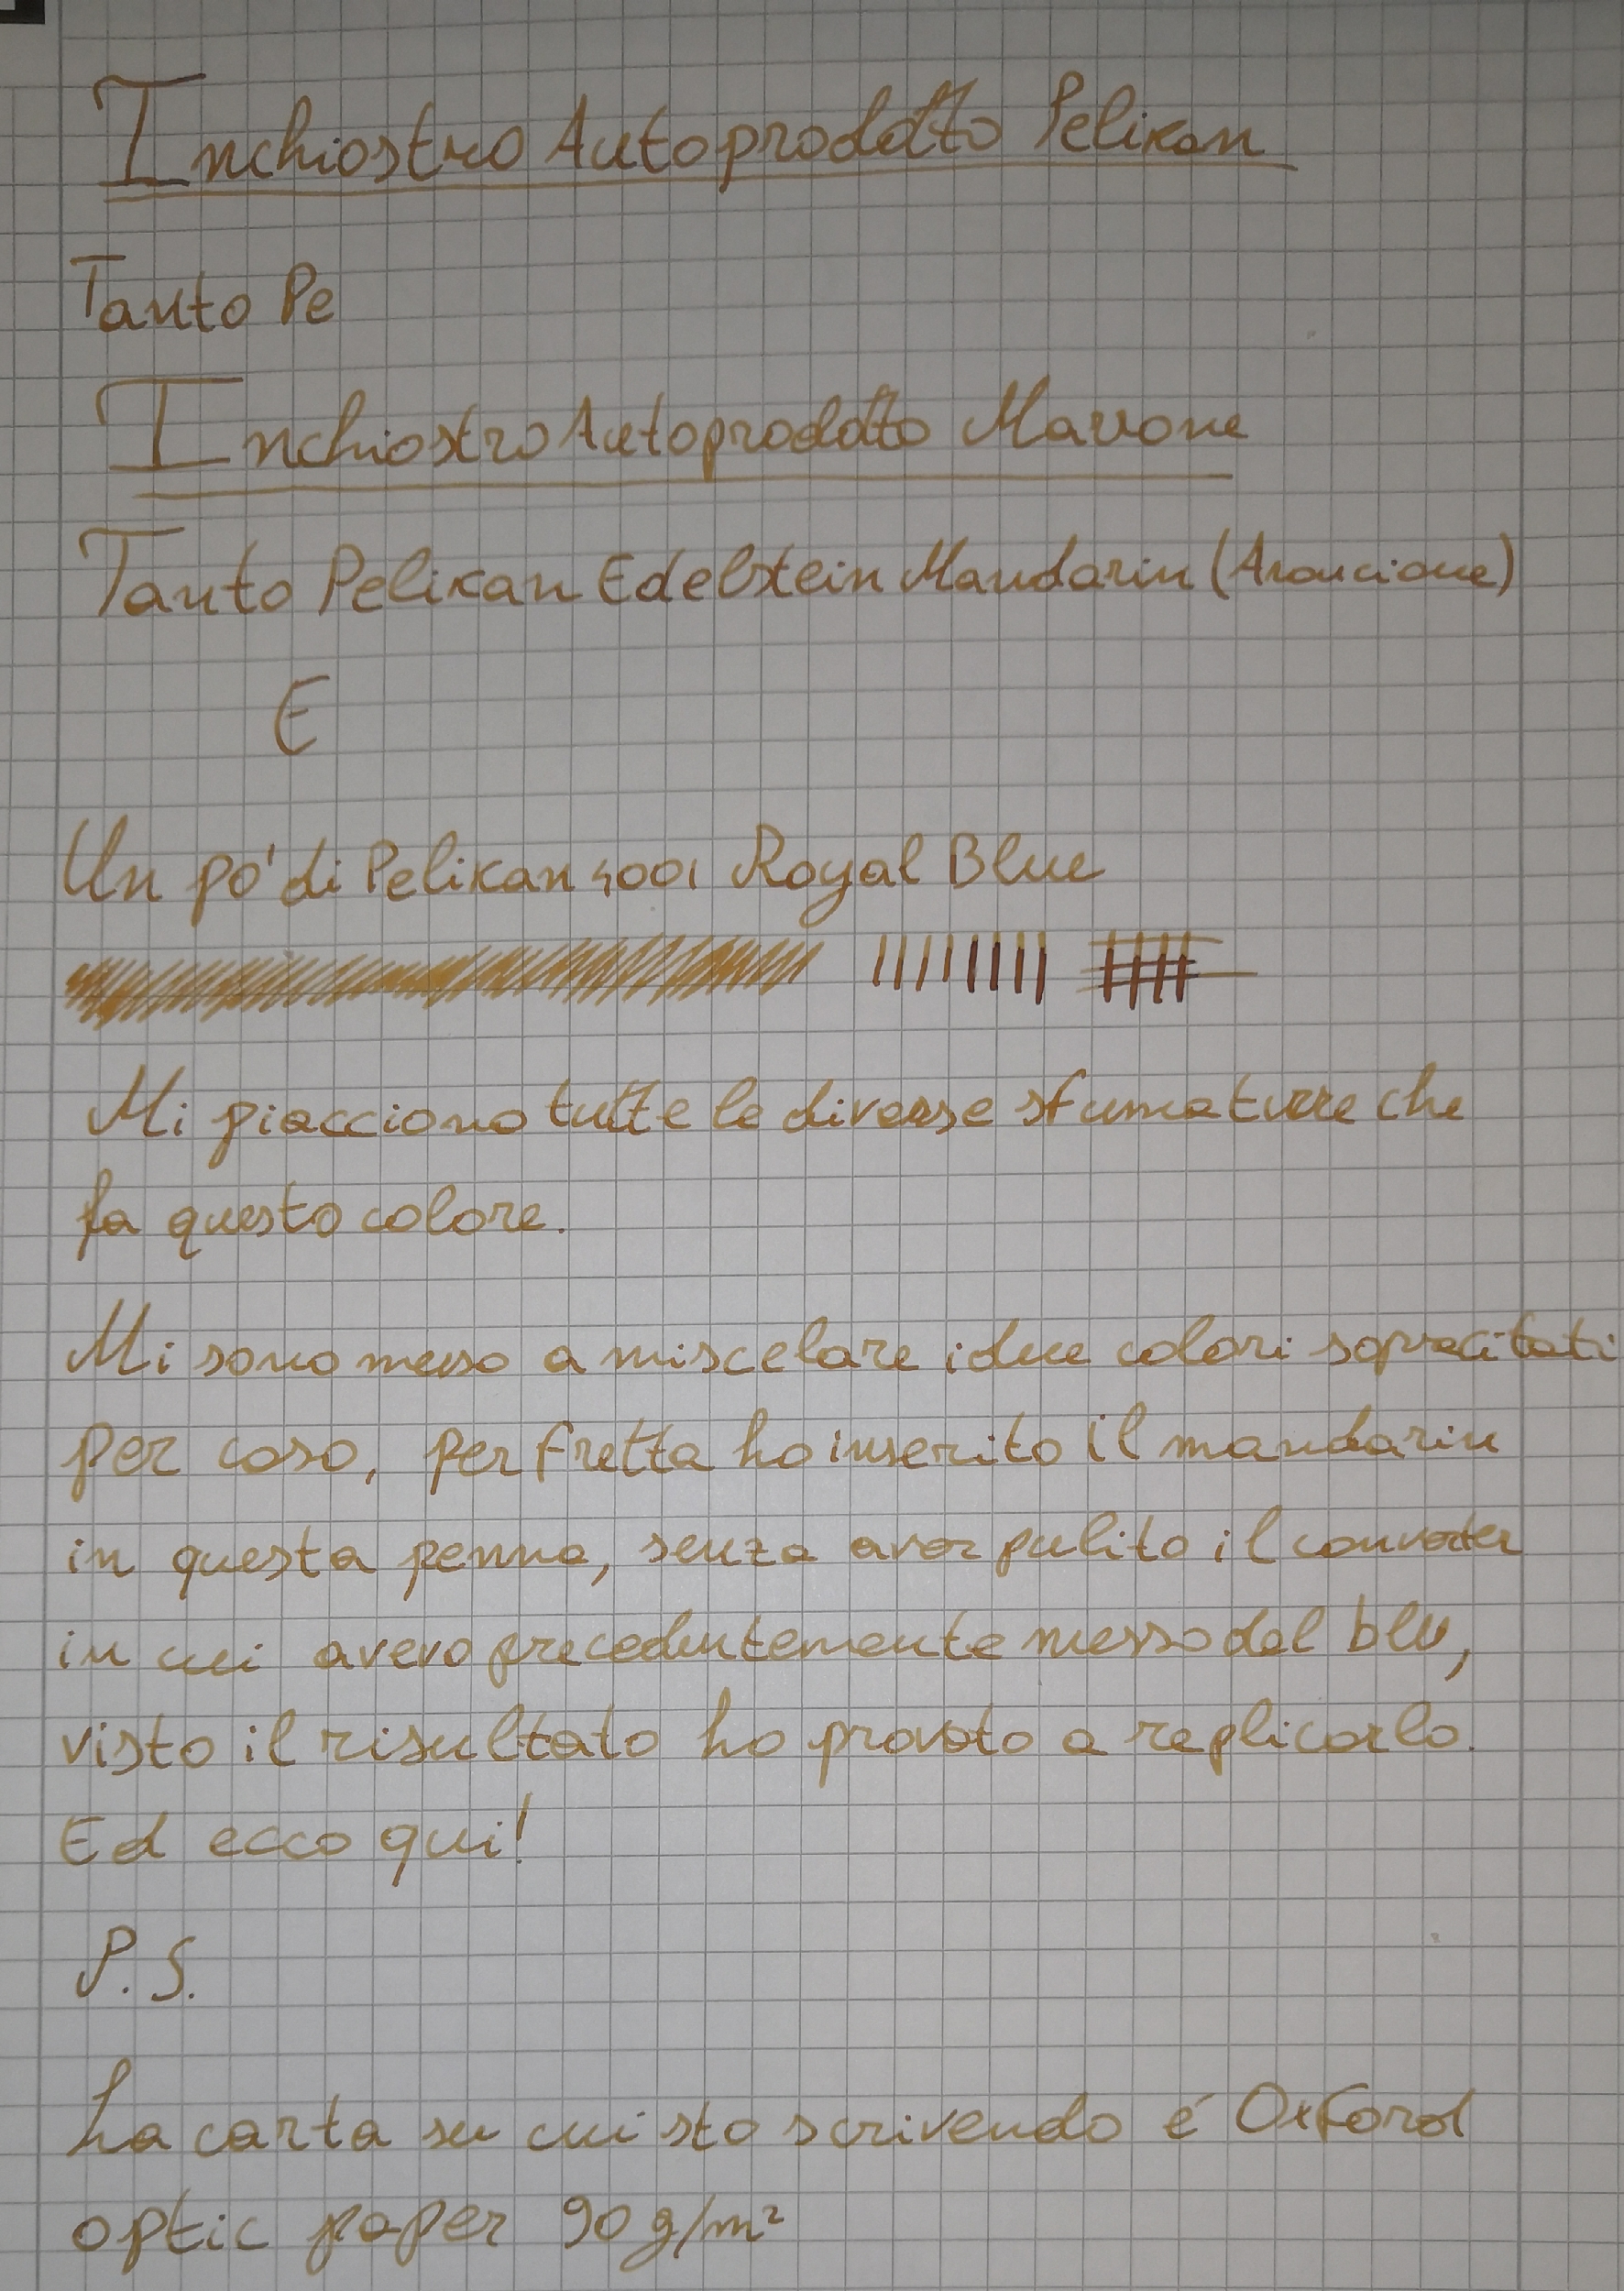 Inchiostro Autoprodotto Pelikan
Tanto Pe
Inchiostro Autoprodotto Marrone
Tanto Pelikan Edelstein Mandarin (Arancione)
E
Un po' di Pelikan 4001 Royal Blue
Mi piacciono tutte le diverse sfumature che
fa questo colore.
Mi sono messo a miscelare i due colori sopracitati
per caso, per fretta ho inserito il mandarin
in questa penna, senza aver pulito il converter
in cui avevo precedentemente messo del blu,
visto il risultato ho provato a replicarlo.
Ed ecco qui!
P.S.
La carta su cui sto scrivendo é Oxford
optic paper 90 g/m²